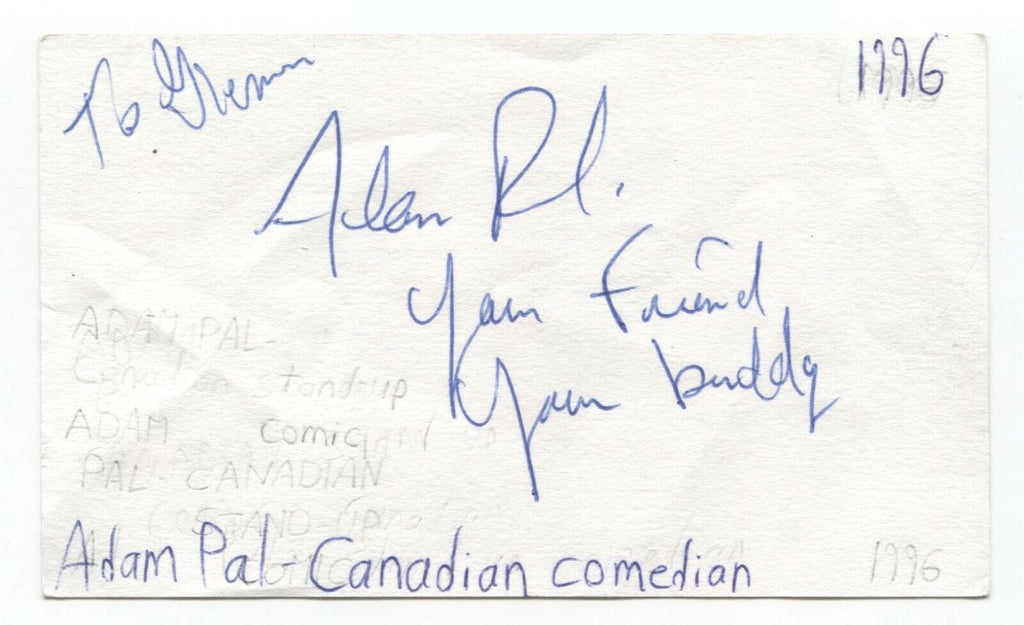 To
1996
Adam Pal.
Your Friend
Your buddy
ADAM PAL-
Canadian stand-up
ADAM comic
PAL- CANADIAN
STAND-UP
Adam Pal- Canadian comedian
1996